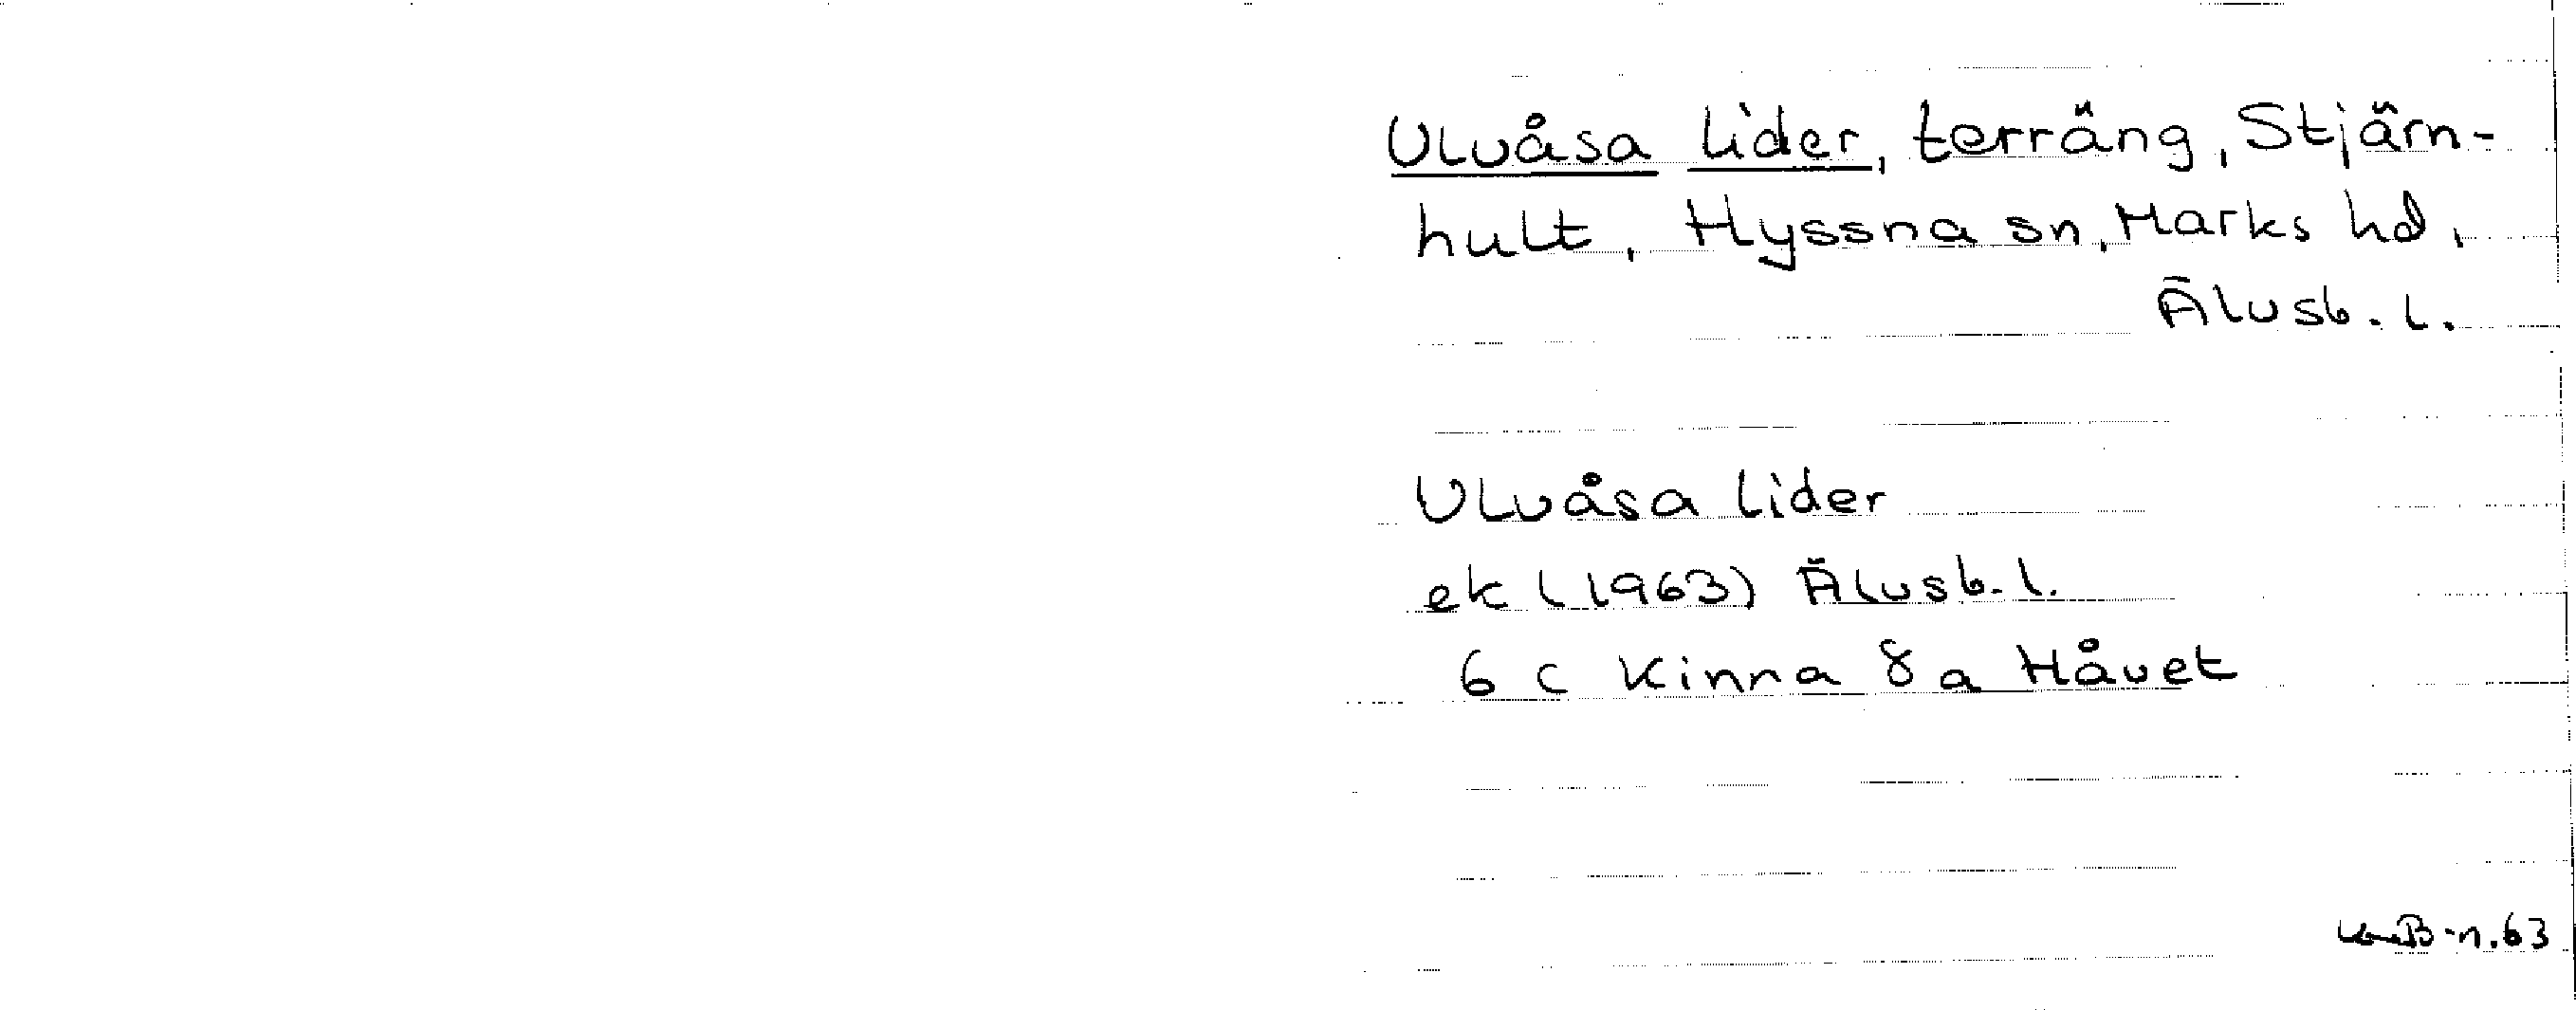 Ulvåsa lider, terräng, Stjärn-
hult, Hyssna sn, Marks hd,
Älvsb. l.
Ulvåsa lider
ek (1963) Älvsb. l.
6 C Kinna 8 a Håvet
B-n. 63